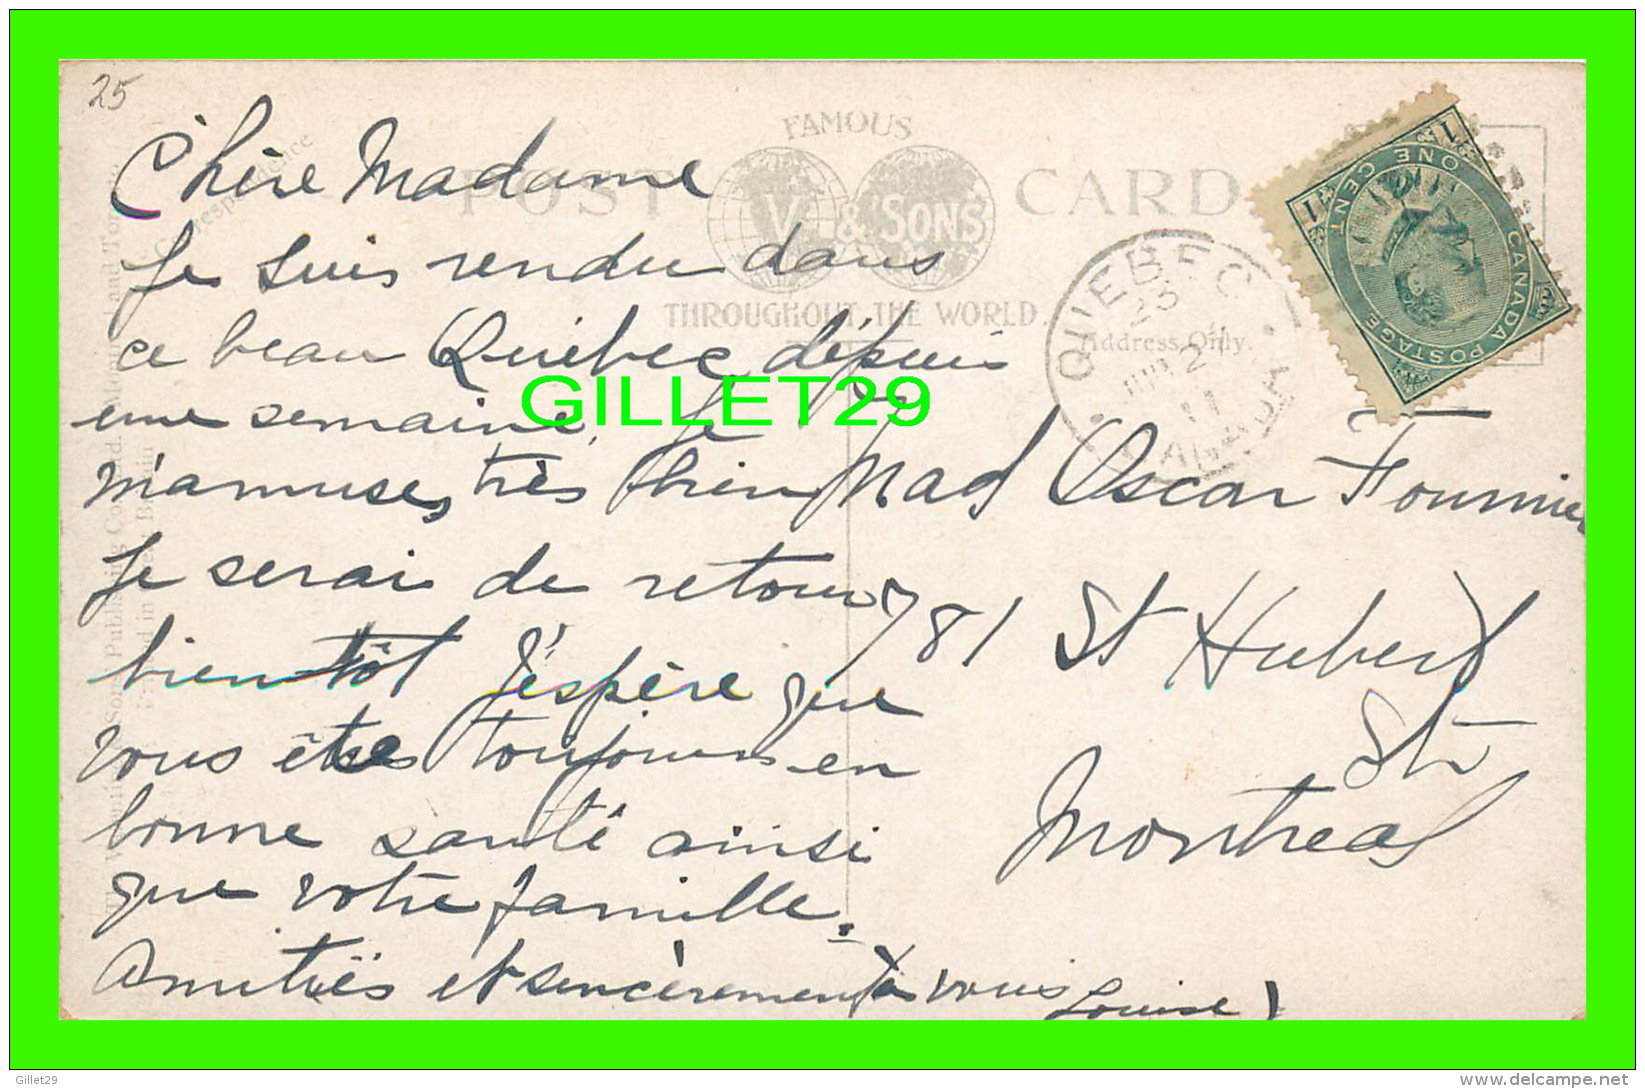 25
Chère Madame
Je suis rendu dans
ce beau Québec depuis
une semaine. Je
m'amuse, très bien
Je serai de retour
bientôt J'éspère que
vous êtes toujours en
bonne santé ainsi
que votre famille.
Amitiés et sincèrement à vous
Louise
FAMOUS
POST CARD
V & SONS
THROUGHOUT THE WORLD.
Address Only.
Correspondence
QUEBEC
23
JUN 21
11
CANADA
CANADA POSTAGE
ONE CENT
1
1
Mad Oscar Fournier
781 St Hubert
Str
Montreal
GILLET29
Gillet29
www.delcampe.net